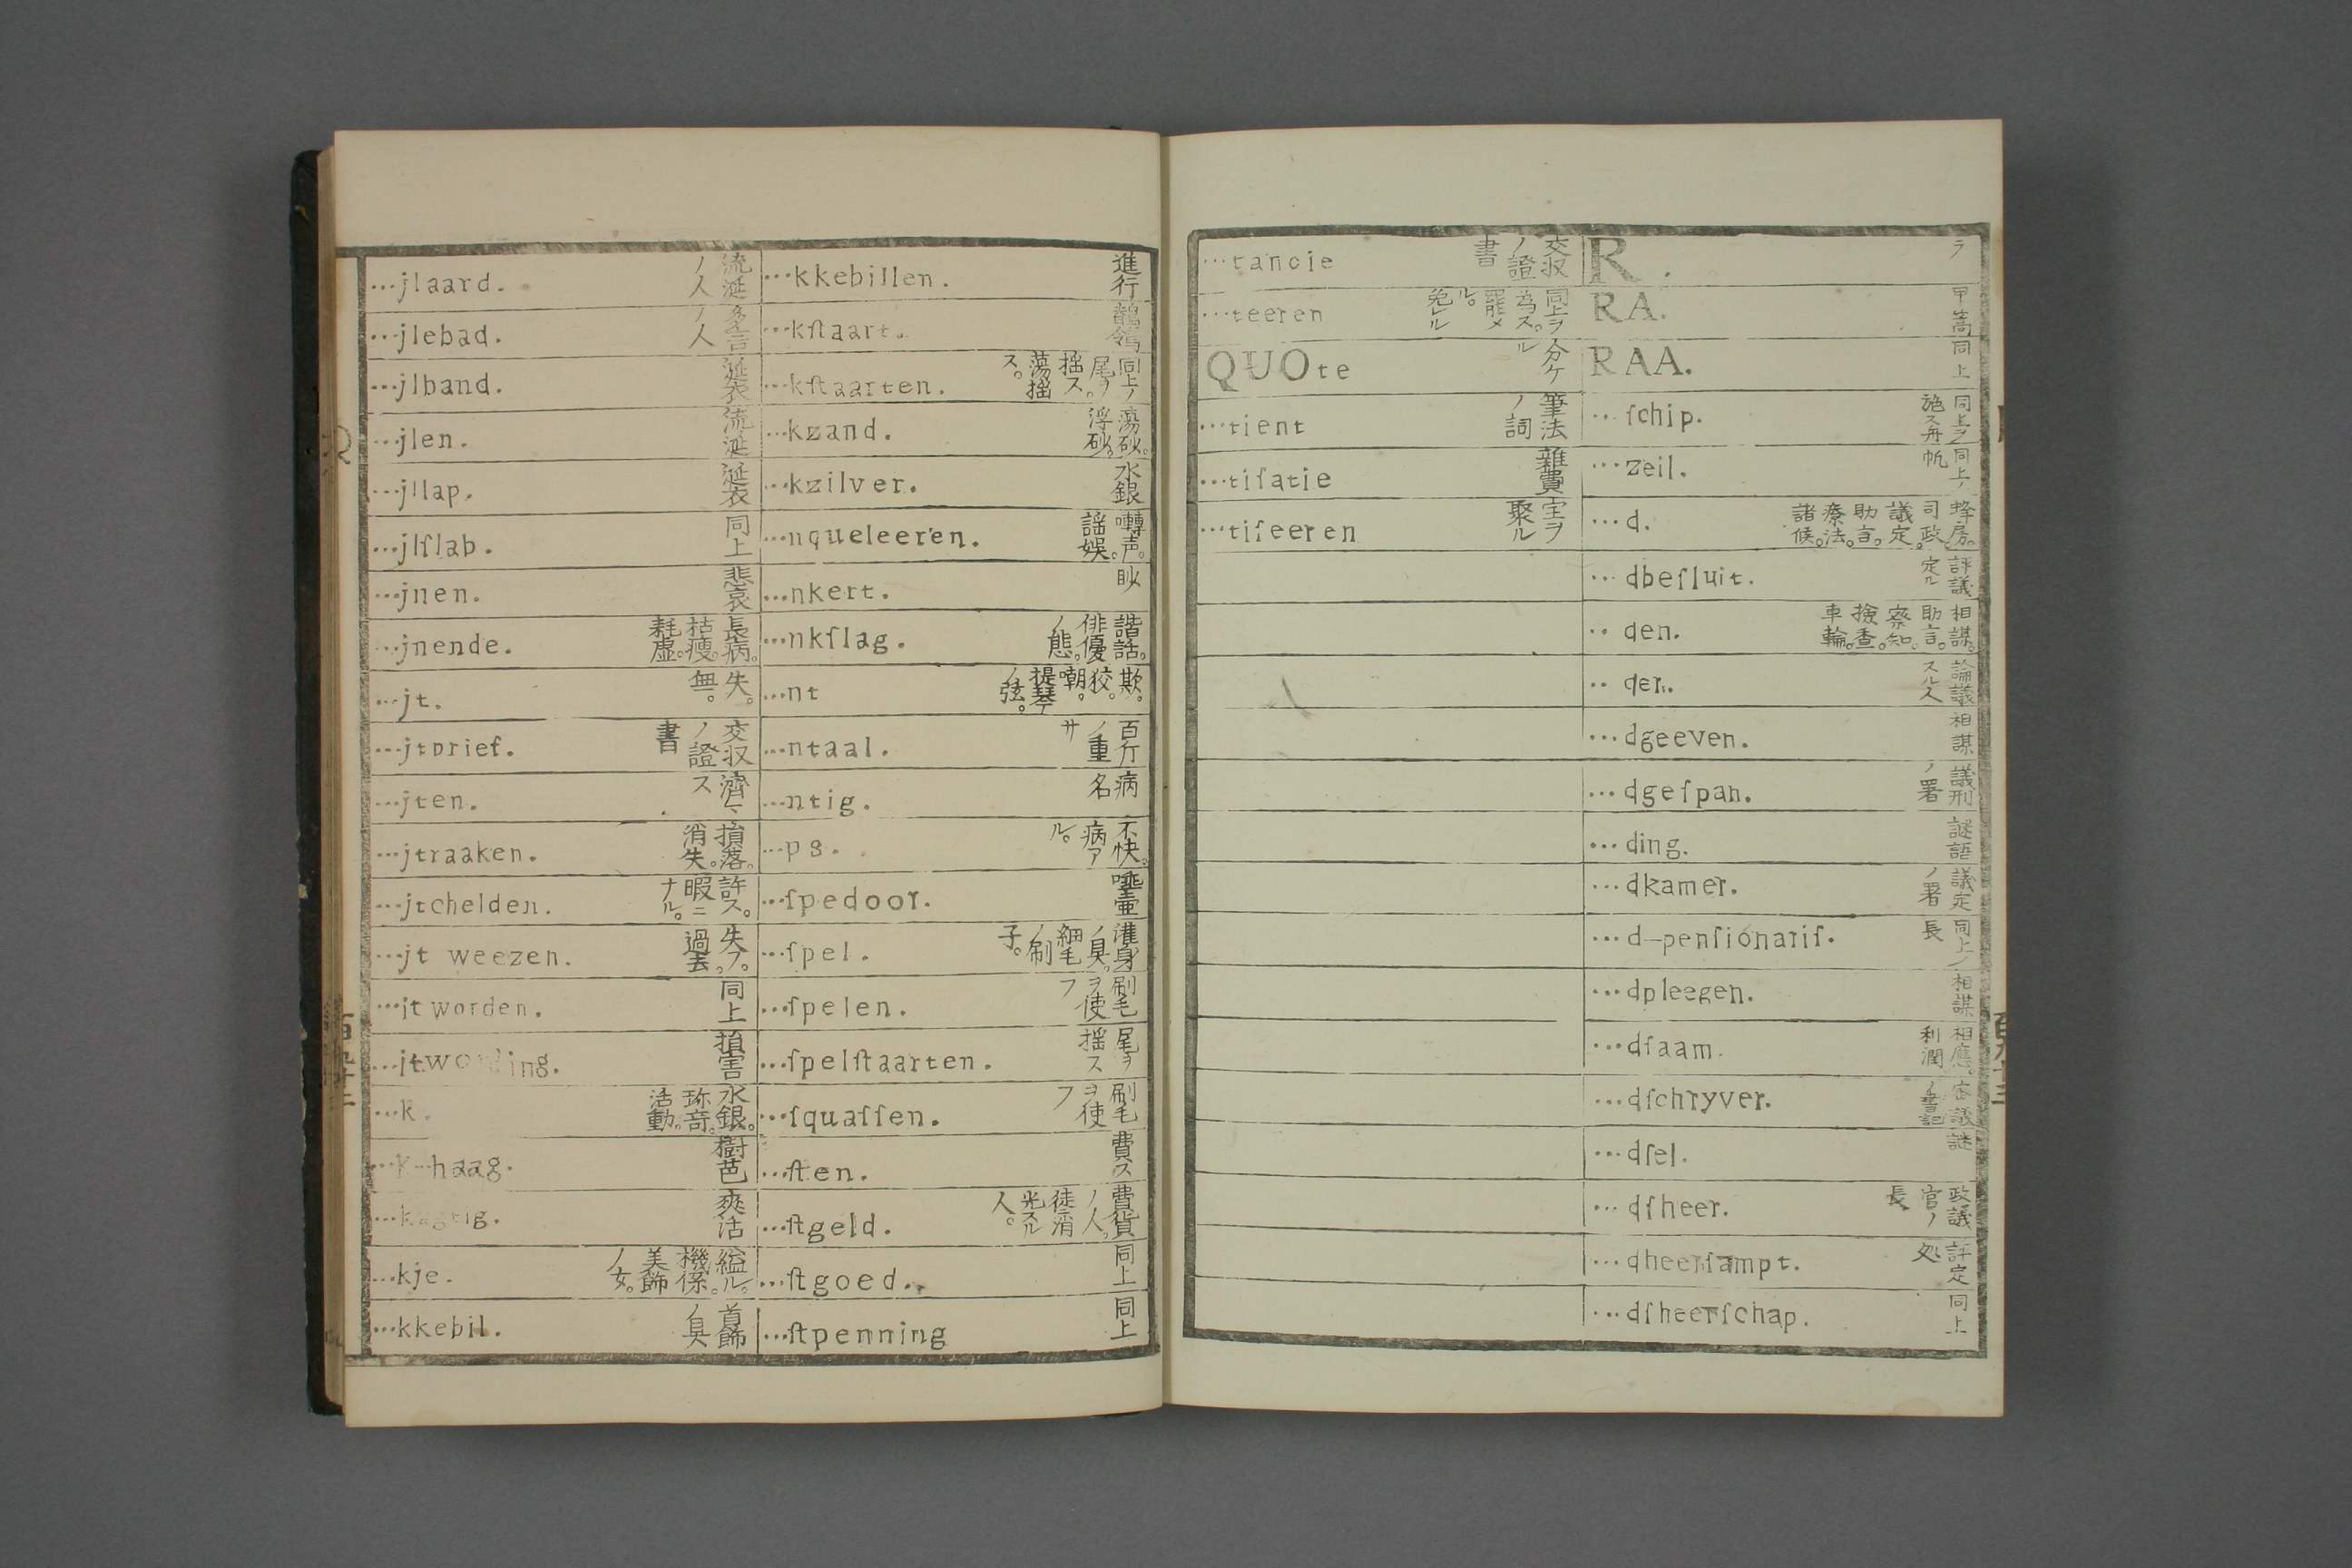 …jlaard. 流涎ノ人
…jlebad. 多言ノ人
…jlband. 涎衣
…jlen. 流涎
…jllap. 涎衣
…jlſlab. 同上
…jnen. 悲哀
…jnende. 長病。枯痩。耗虚。
…jt. 失。無。
…jtbrief. 交収ノ證書
…jten. 濟マス
…jtraaken. 損落。消失。
…jtchelden. 許ス。暇ニナル。
…jt weezen. 失フ。過去。
…jt worden. 同上
…jtwording. 損害
…k. 水銀。珎竒。活動。
…k-haag. 樹芭
…kagtig. 爽活
…kje. 縊ル。機係。美飾ノ女。
…kkebil. 首飾ノ臭
…kkebillen. 進行
…kſtaart. 鶺鴒
…kſtaarten. 同上ノ尾ヲ揺ス。蕩揺ス。
…kzand. 蕩砂。浮砂。
…kzilver. 水銀
…nqueleeren. 囀声。謡娯。
…nkert. 眇
…nkſlag. 諧話。俳優ノ態。
…nt 欺。狡。嘲。提琴ノ弦。
…ntaal. 百斤ノ重サ
…ntig. 病名
…ps. 不快。病アル。
…ſpedoor. 唾壷
…ſpel. 灌身ノ臭。細毛ノ刷子。
…ſpelen. 刷毛ヲ使フ
…ſpelſtaarten. 尾ヲ揺ス
…ſquaſſen. 刷毛ヲ使フ
…ſten. 費ス
…ſtgeld. 費貨ノ人。徒消光スル人。
…ſtgoed. 同上
…ſtpenning 同上
…tancie 交収ノ證書
…teeren 同上ヲ為ス。罷メル。免レル
QUOte 分ケル
…tient 筆法ノ詞
…tiſatie 雜費
…tiſeeren 宝ヲ聚ル
R. ラ
RA. 甲嵩
RAA. 同上
…ſchip. 同上ヲ施ス舟
…zeil. 同上ノ帆
…d. 蜂房。司政。議定。助言。療法。諸候。
…dbeſluit. 評議定ル
‥den. 相謀。助言。察知。撿査。車輪。
‥der. 論議スル人
…dgeeven. 相謀
…dgeſpan. 議刑ノ署
…ding. 謎語
…dkamer. 議定ノ署
…d-penſionariſ. 同上ノ長
…dpleegen. 相謀
…dſaam. 相應。利潤
…dſchryver. 密議ノ書記
…dſel. 謎
…dſheer. 政議官ノ長
…dheerſampt. 評定処
…dſheerſchap. 同上